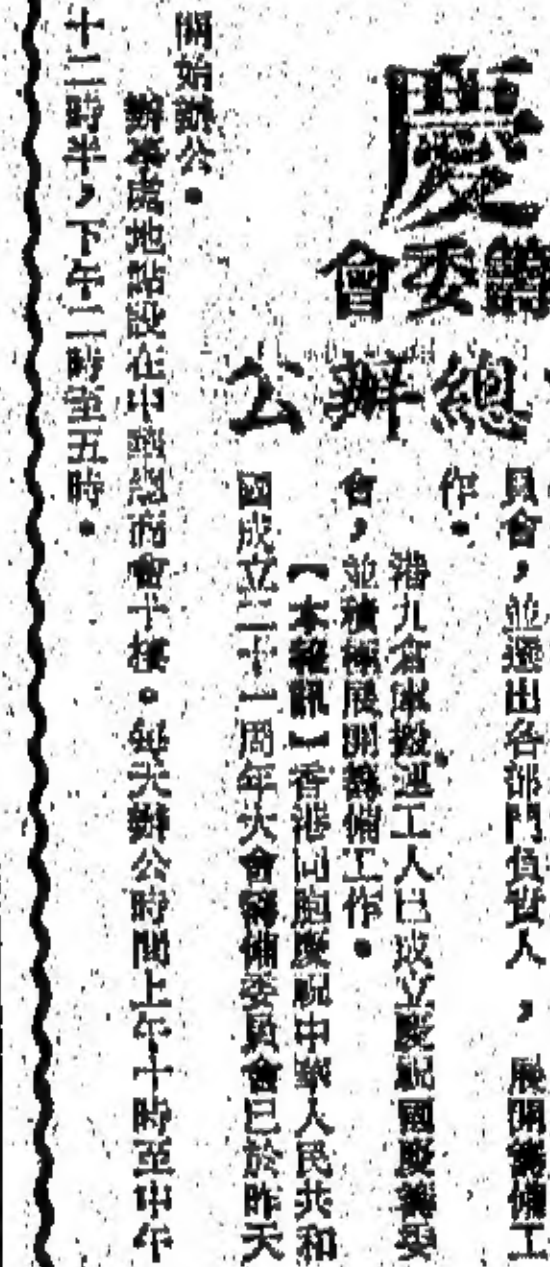 慶
籌委會
總辦公
員會,並選出各部門負責人,展開籌備工
作。
港九倉庫搬運工人已成立慶祝國慶籌委
會,並積極展開籌備工作。
【本報訊】香港同胞慶祝中華人民共和
國成立二十一周年大會籌備委員會已於昨天
開始辦公。
辦事處地點設在中華總商會十樓。每天辦公時間上午十時至中午
十二時半,下午二時至五時。